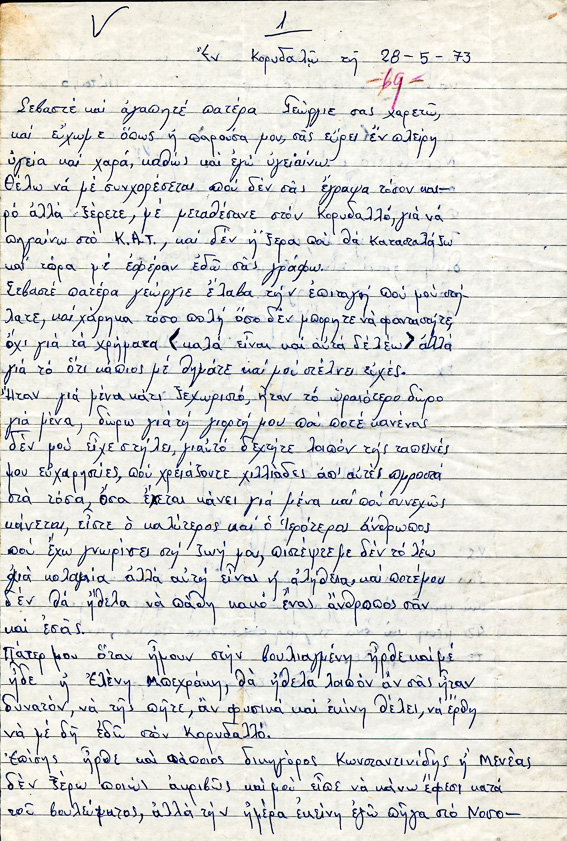 1
Ἐν Κορυδαλῷ τῇ 28-5-73
-69-
Σεβαστέ καί ἀγαπητέ πατέρα Γεώργιε σας χαρετῶ,
καί εὔχωμε ὅπως ἡ παροῦσα μου, σᾶς εὕρει ἐν πλείρη
ὑγεία καί χαρά, καθώς καί ἐγώ ὑγειαίνω.
Θέλω νά μέ συνχορέσεται πού δέν σᾶς ἔγραψα τόσον και-
ρό ἀλλά ξέρετε, μέ μεταθέσανε στόν Κορυδαλλό, γιά νά
πηγαίνω στό Κ.Α.Τ., καί δέν ἤξερα ποῦ θά καταστα­λάξω
καί τώρα μέ ἐφέραν ἐδῶ σᾶς γράφω.
Σεβαστέ πατέρα γεώργιε ἔλαβα τήν ἐπιταγή πού μοῦ στή-
λατε, καί χάρηκα τόσο πολή ὅσο δέν μπορῆτε νά φανταστῆτε,
ὄχι γιά τά χρήματα (καλά εἶναι καί αὐτά δέ λέω) ἀλλά
γιά τό ὅτι κάπιος μέ θημᾶτε καί μοῦ στέλνει εὐχές.
Ἦταν γιά μένα κάτι ξεχωριστό, ἦταν τό ὡραιότερο δῶρο
γιά μένα, δώρω γιά τή γιορτή μου πού ποτέ κανένας
δέν μοῦ εἶχε στήλει, γιαυτό δεχτῆτε λοιπόν τής ταπεινές
μου εὐχαρηστίες, πού χρειάζοντε χιλλιάδες ἀπ' αὐτές μπροστά
στά τόσα, ὅσα ἔχεται κάνει γιά μένα καί πού συνεχῶς
κάνεται, εἶστε ὁ καλύτερος καί ὁ ἱερότερος ἄνθρωπος
πού ἔχω γνωρίσει στή ζωή μου, πιστέψτε με δέν τό λέω
γιά κολακία ἀλλά αὐτή εἶναι ἡ ἀλήθεια, καί ποτέ μου
δέν θά ἤθελα νά πάθη κακό ἕνας ἄνθρωπος σάν
καί ἐσᾶς.
Πάτερ μου ὅταν ἤμουν στήν βουλιαγμένη ἦρθε καί μέ
ἦδε ἡ Ἑλένη Μπεχράκη, θά ἤθελα λοιπόν ἄν σᾶς ἦταν
δυνατόν, νά τῆς πῆτε, ἄν φυσικά καί ἐκίνη θέλει, νά ἔρθη
νά μέ δῆ ἐδῶ στόν Κορυδαλλό.
Ἐπίσης ἦρθε καί κάποιος δικηγόρος Κωνσταντινίδης ἤ Μενέας
δέν ξέρω ποιώς ἀκριβῶς καί μοῦ εἶπε νά κάνω ἔφεσι κατά
τοῦ βουλεύματος, ἀλλά τήν ἡμέρα ἐκείνη ἐγώ πῆγα στό Νοσο-